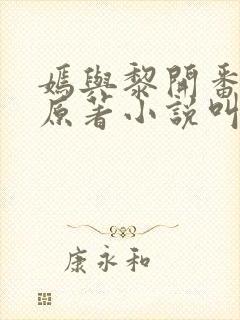 嫣與黎開番
原著小說叫
康永和